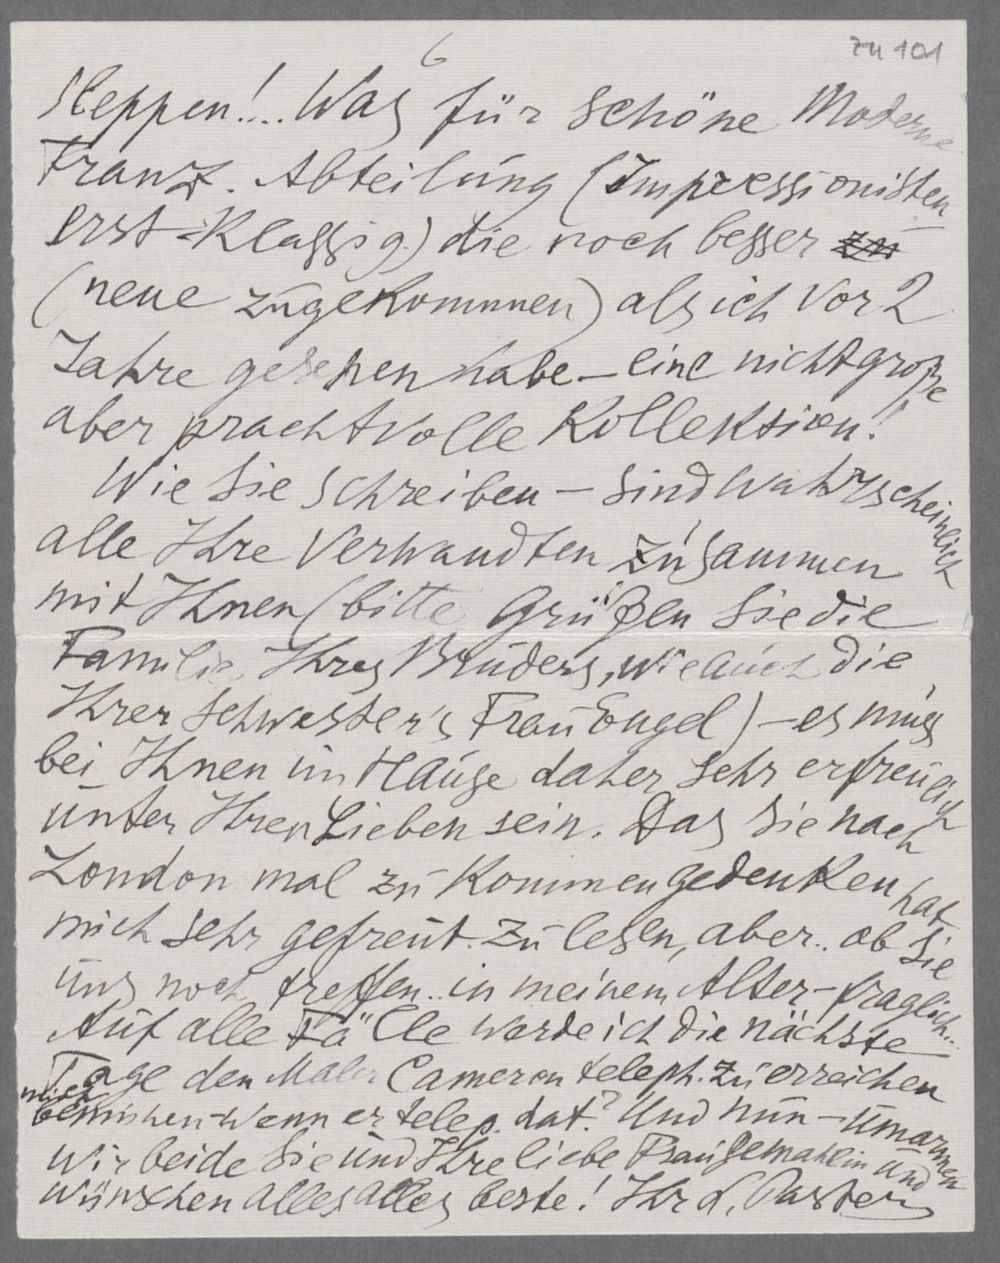 zu 101
6
Steppen!... Was für schöne Moderne
Franz. Abteilung (Impressionisten
erst-Klassig) die noch besser zu
(neue zugekommnen) als ich vor 2
Jahre gesehen habe – eine nicht große
aber prachtvolle Kollektion!
Wie Sie schreiben – sind wahrscheinlich
alle Ihre Verwandten zusammen
mit Ihnen (bitte Grüßen Sie die
Familie Ihres Bruders, wie auch die
Ihrer Schwester's Frau Engel) – es muss
bei Ihnen im Hause daher sehr erfreulich
unter Ihren Lieben sein. Das Sie nach
London mal zu Kommen gedenken hat
mich sehr gefreut zu lesen, aber.. ob Sie
uns noch treffen.. in meinem Alter – fraglich...
Auf alle Fälle werde ich die nächste
Tage den Maler Cameron teleph. zu erreichen
mich
bemühen – Wenn er telep. hat? Und nun – umarmen
wir beide Sie und Ihre liebe Frau Gemahlin und
wünschen alles alles beste! Ihr L. Pasternak